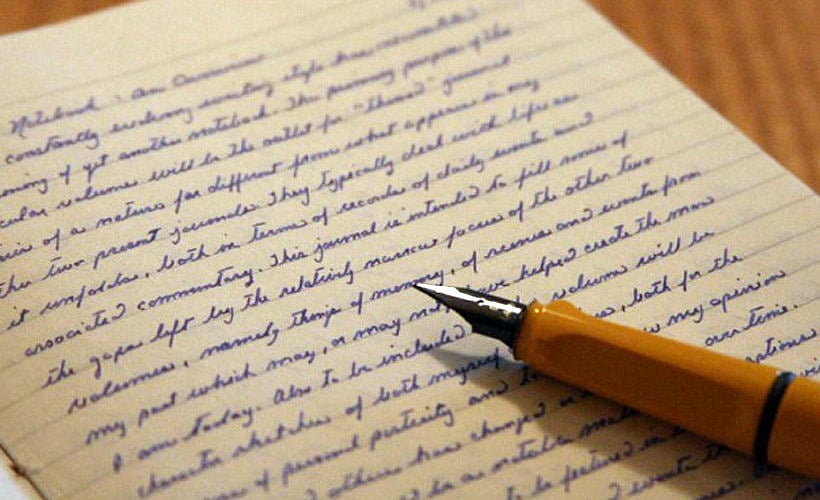 Notebook. An Overview
constantly evolving writing style has necessitated
ming of yet another notebook. The primary purpose of the
cular volumes will be the outlet for "themed" journal
of a nature far different from what appears in my
ther two present journals. They typically deal with life as
it unfolds, both in terms of records of daily events and
associated commentary. This journal is intended to fill some of
the gaps left by the relatively narrow focus of the other two
volumes, namely things of memory, of scenes and events from
my past which may, or may not, have helped create the man
I am today. Also to be included volume will be
character sketches of both myself , both for the
of personal posterity and my opinion
others has changed over time.
be a notable
to be featured in